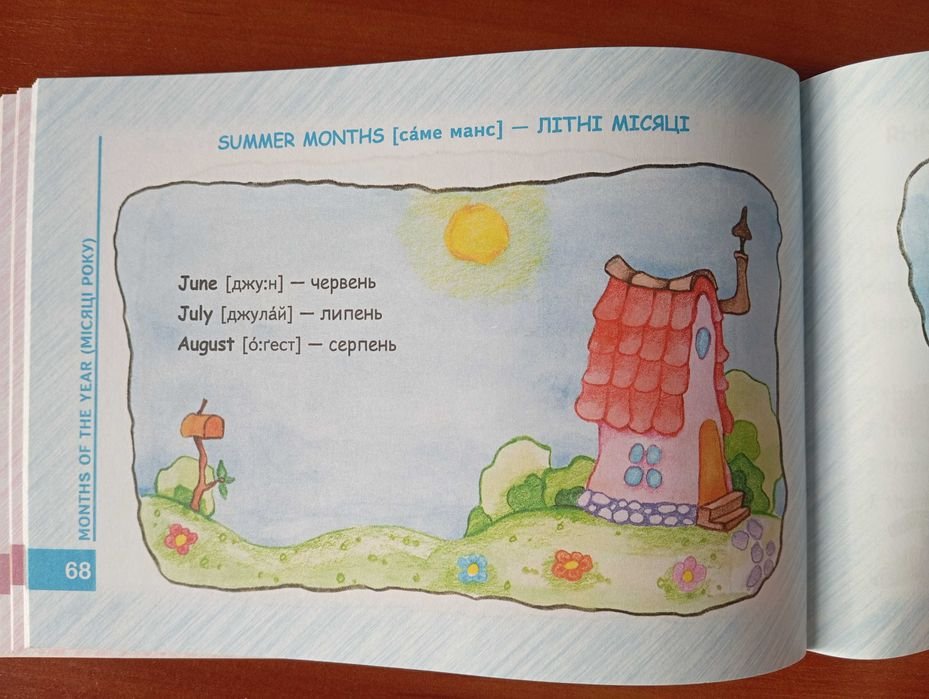 SUMMER MONTHS [са́ме манс] — ЛІТНІ МІСЯЦІ
June [джу:н] — червень
July [джула́й] — липень
August [о́:ґест] — серпень
MONTHS OF THE YEAR (МІСЯЦІ РОКУ)
68